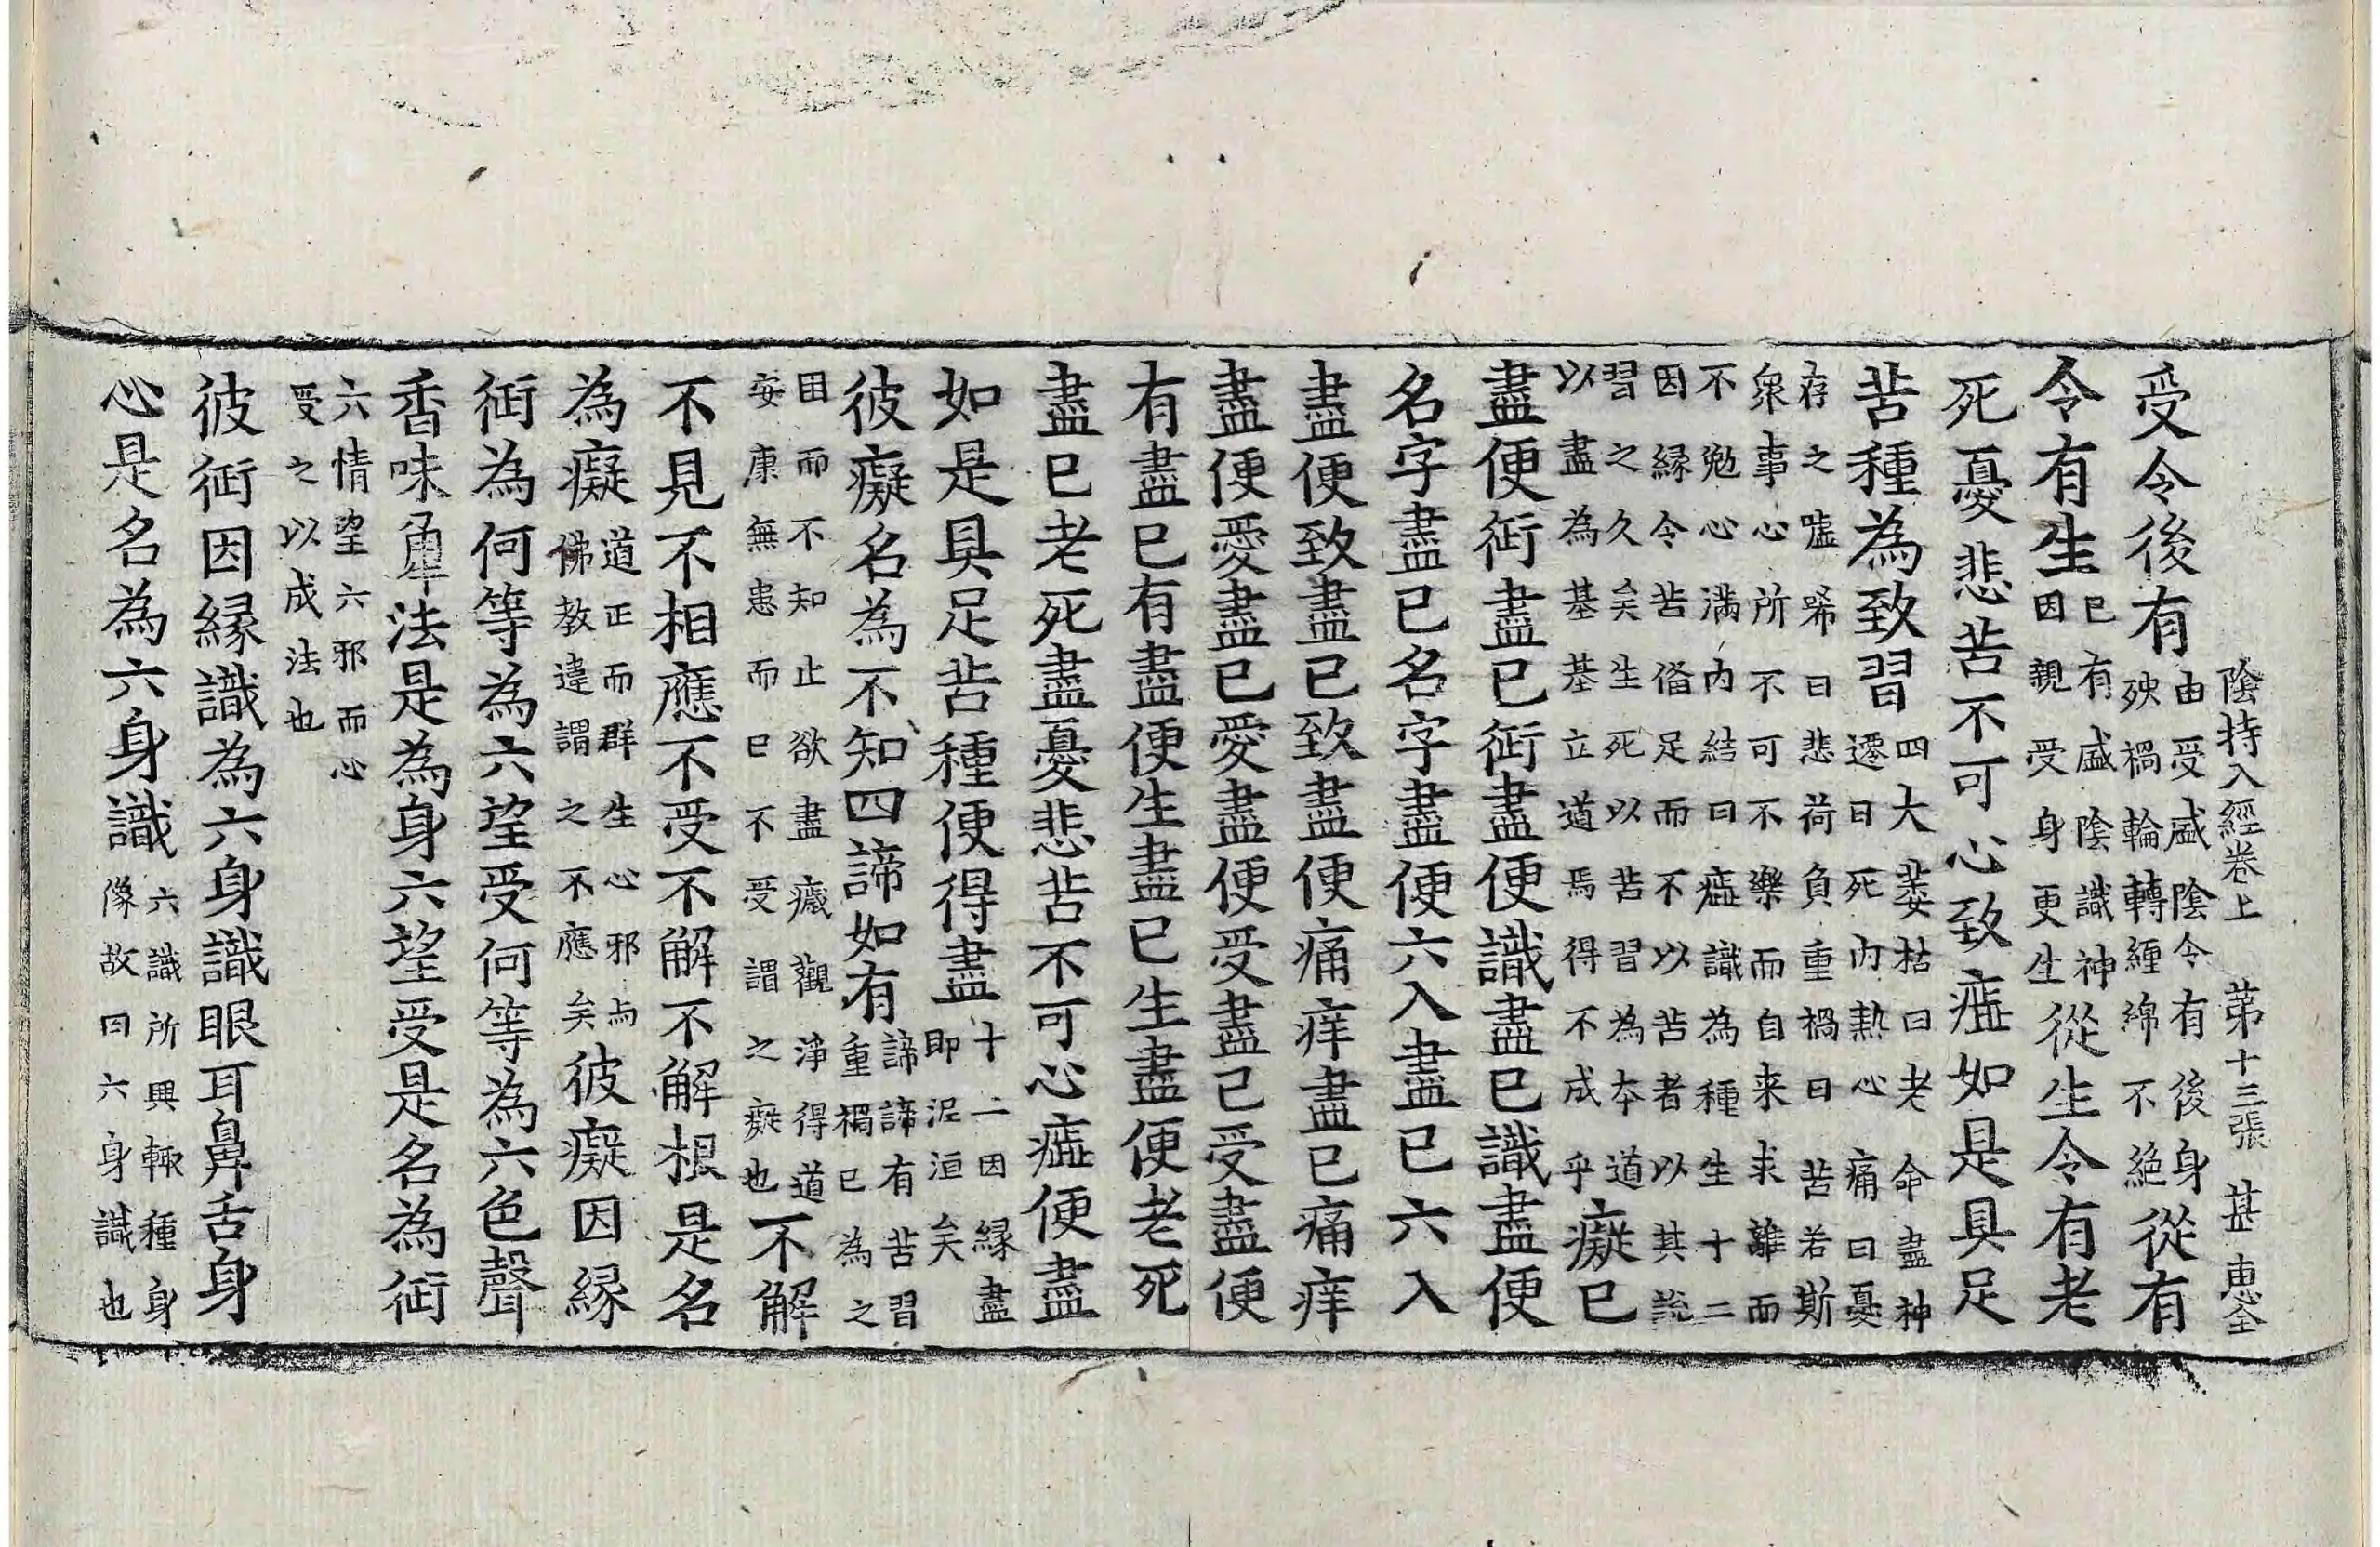 陰持入經卷上 第十三張 甚 惠全
受令後有由受盛陰令有後身殃禍輪轉緾綿不絕從有
令有生已有盛陰識神因親受身更生從生令有老
死憂悲苦不可心致如是具足
苦種為致習四大萎枯曰老命盡神遷曰死內熱心痛曰憂
存之噓唏曰悲荷負重禍曰苦若斯衆事心所不可不樂而自来求離而
不勉心滿內結曰識為種生十二因縁令苦偹足而不以苦者以其説
習之久矣生死以苦習為本道以盡為基基立道焉得不成乎癡已
盡便行盡已行盡便識盡已識盡便
名字盡已名字盡便六入盡已六入
盡便致盡已致盡便痛痒盡已痛痒
盡便愛盡已愛盡便受盡已受盡便
有盡已有盡便生盡已生盡便老死
盡已老死盡憂悲苦不可心便盡
如是具足苦種便得盡十二因縁盡即泥洹矣
彼癡名為不知四諦如有諦諦有苦習重禍已為之
困而不知止欲盡癡觀淨得道安康無患而已不受謂之癡也不解
不見不相應不受不解不解根是名
為癡道正而群生心邪与佛教違謂之不應矣彼癡因縁
行為何等為六望受何等為六色聲
香味麁法是為身六望受是名為行
六情望六邪而心受之以成法也
彼行因縁識為六身識眼耳鼻舌身
心是名為六身識六識所興輙種身像故曰六身識也